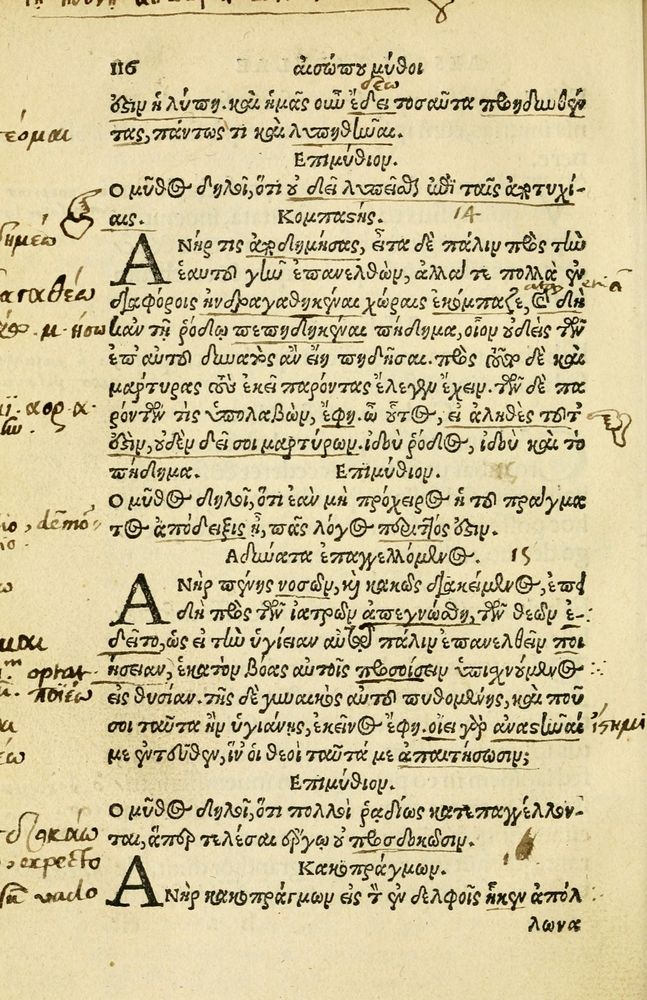 116 αἰσώπου μῦθοι
δέω
ὅσιμ ἡ λύπη. καὶ ἡμᾶς οὖν ἔδει τοσαῦτα πηδυνθέν
τας, πάντως τι καὶ λυπηθῆναι.
Ἐπιμύθιον.
Ὁ μῦθος δηλοῖ, ὅτι οὐ δεῖ λυπεῖσθαι ἐπὶ ταῖς ἀποτυχί-
αις. Κομπαστής. 14
ΑΝήρ τις ἀποδημήσας, εἶτα δὲ πάλιν πρὸς τὴν
ἑαυτοῦ γῆν ἐπανελθὼν, ἄλλα τε πολλὰ ἐν
διαφόροις ἠνδραγαθηκέναι χώραις ἐκόμπαζε, καὶ δὴ
κἀν τῇ ῥόδῳ πεπηδηκέναι πήδημα, οἷον οὐδεὶς τῶν
ἐπ' αὐτοῦ δυνατὸς ἂν εἴη πηδῆσαι. πρὸς τοῦτο δὲ καὶ
μάρτυρας τοὺς ἐκεῖ παρόντας ἔλεγεν ἔχειν. τῶν δὲ πα
ρόντων τὶς ὑπολαβὼν, ἔφη. ὦ οὗτος, εἰ ἀληθὲς τοῦτ'
ἐστιν, οὐδὲν δεῖ σοι μαρτύρων. ἰδοὺ ῥόδος, ἰδοὺ καὶ τὸ
πήδημα. Ἐπιμύθιον.
Ὁ μῦθος δηλοῖ, ὅτι ἐὰν μὴ πρόχειρος ἡ τοῦ πράγμα
τος ἀπόδειξις ᾖ, πᾶς λόγος περιττός ἐστιν.
Ἀδύνατα ἐπαγγελλόμενος. 15
ΑΝὴρ πένης νοσῶν, καὶ κακῶς διακείμενος, ἐπει
δὴ πρὸς τῶν ἰατρῶν ἀπεγνώσθη, τῶν θεῶν ἐ-
δεῖτο, ὡς εἰ τὴν ὑγίειαν αὐτῷ πάλιν ἐπανελθεῖν ποι
ήσειαν, ἑκατὸν βόας αὐτοῖς προσοίσειν ὑπισχνούμενος
εἰς θυσίαν. τῆς δὲ γυναικὸς αὐτοῦ πυθομένης, καὶ ποῦ
σοι ταῦτα ἢν ὑγιάνῃς, ἐκεῖνος ἔφη. οἴει γὰρ ἀναστῆναί
με ἐντεῦθεν, ἵν' οἱ θεοὶ ταῦτά με ἀπαιτήσωσιν;
Ἐπιμύθιον.
Ὁ μῦθος δηλοῖ, ὅτι πολλοὶ ῥᾳδίως κατεπαγγέλλον-
ται, ἅπερ τελέσαι ἔργῳ οὐ προσδοκῶσιν.
Κακοπράγμων. 16
ΑΝὴρ κακοπράγμων εἰς τὸν ἐν δελφοῖς ἧκεν ἀπόλ
λωνα
δημέω
αγαθέω
optat
ποιέω
ἵστημι
expecto
vado